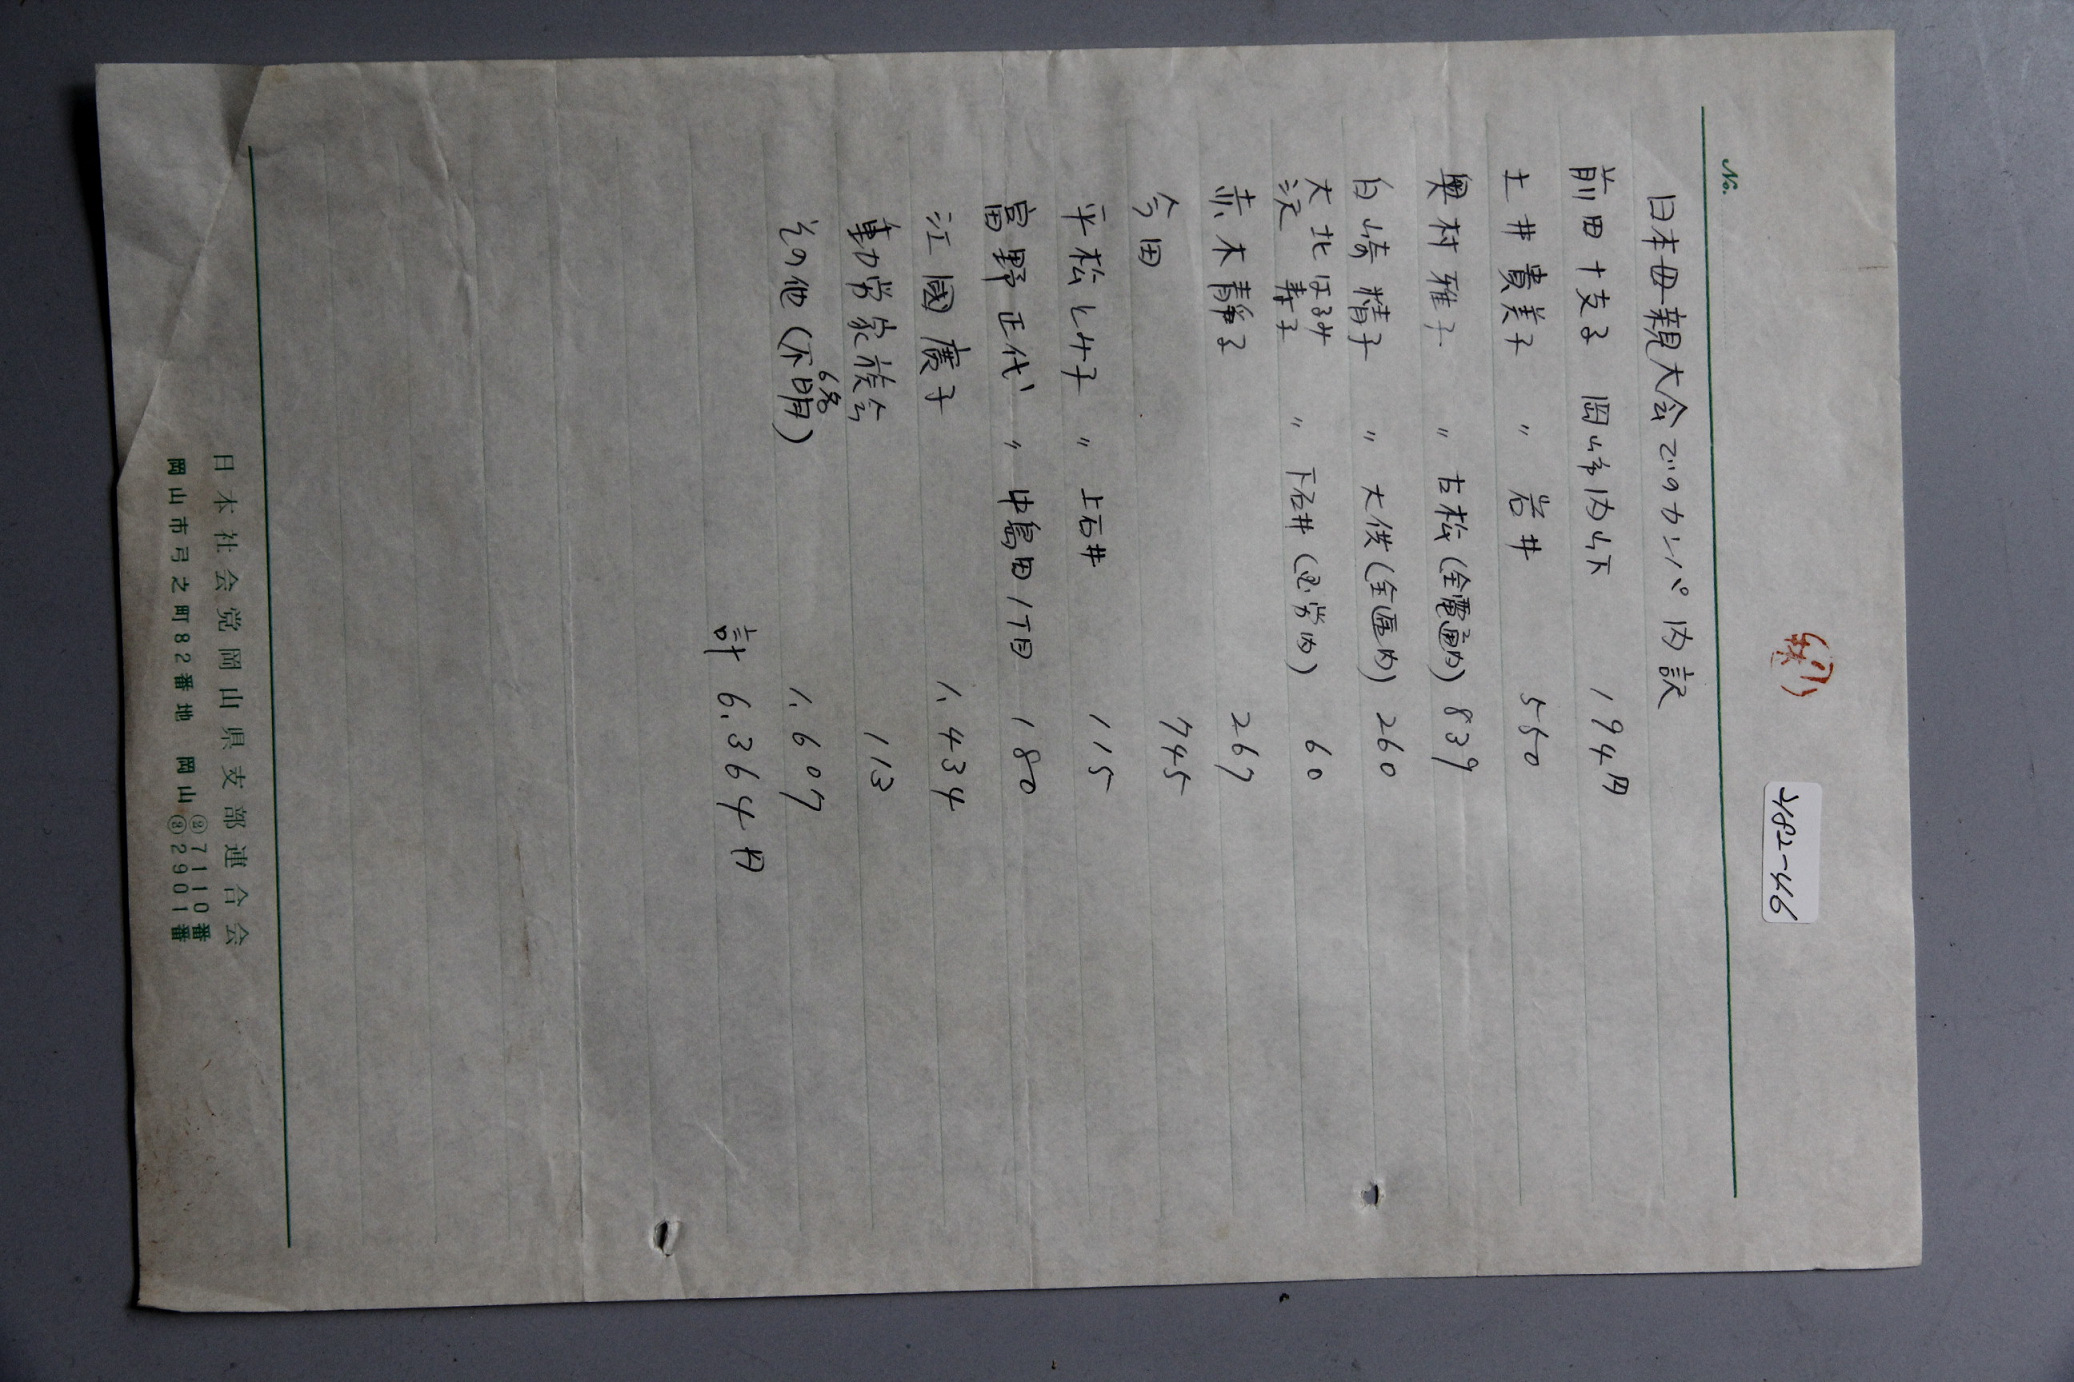 No.
2182-46
日本母親大会でのカンパ内訳
前田十支子 岡山市内山下 194円
土井貴美子 〃 岩井 550
奥村雅子 〃 古松(全電通内) 839
白崎精子 〃 大供(全逓内) 260
大北はるみ
沢 寿子 〃 下石井(国労内) 60
赤木静子 267
今田 745
平松しげ子 〃 上石井 115
富野正代 〃 中島田1丁目 180
江國廣子 1.434
動力労家族会 113
その他(不明) 6名 1.607
計 6.364円
日本社会党岡山県支部連合会
岡山市弓之町82番地 岡山②7110番
②2901番